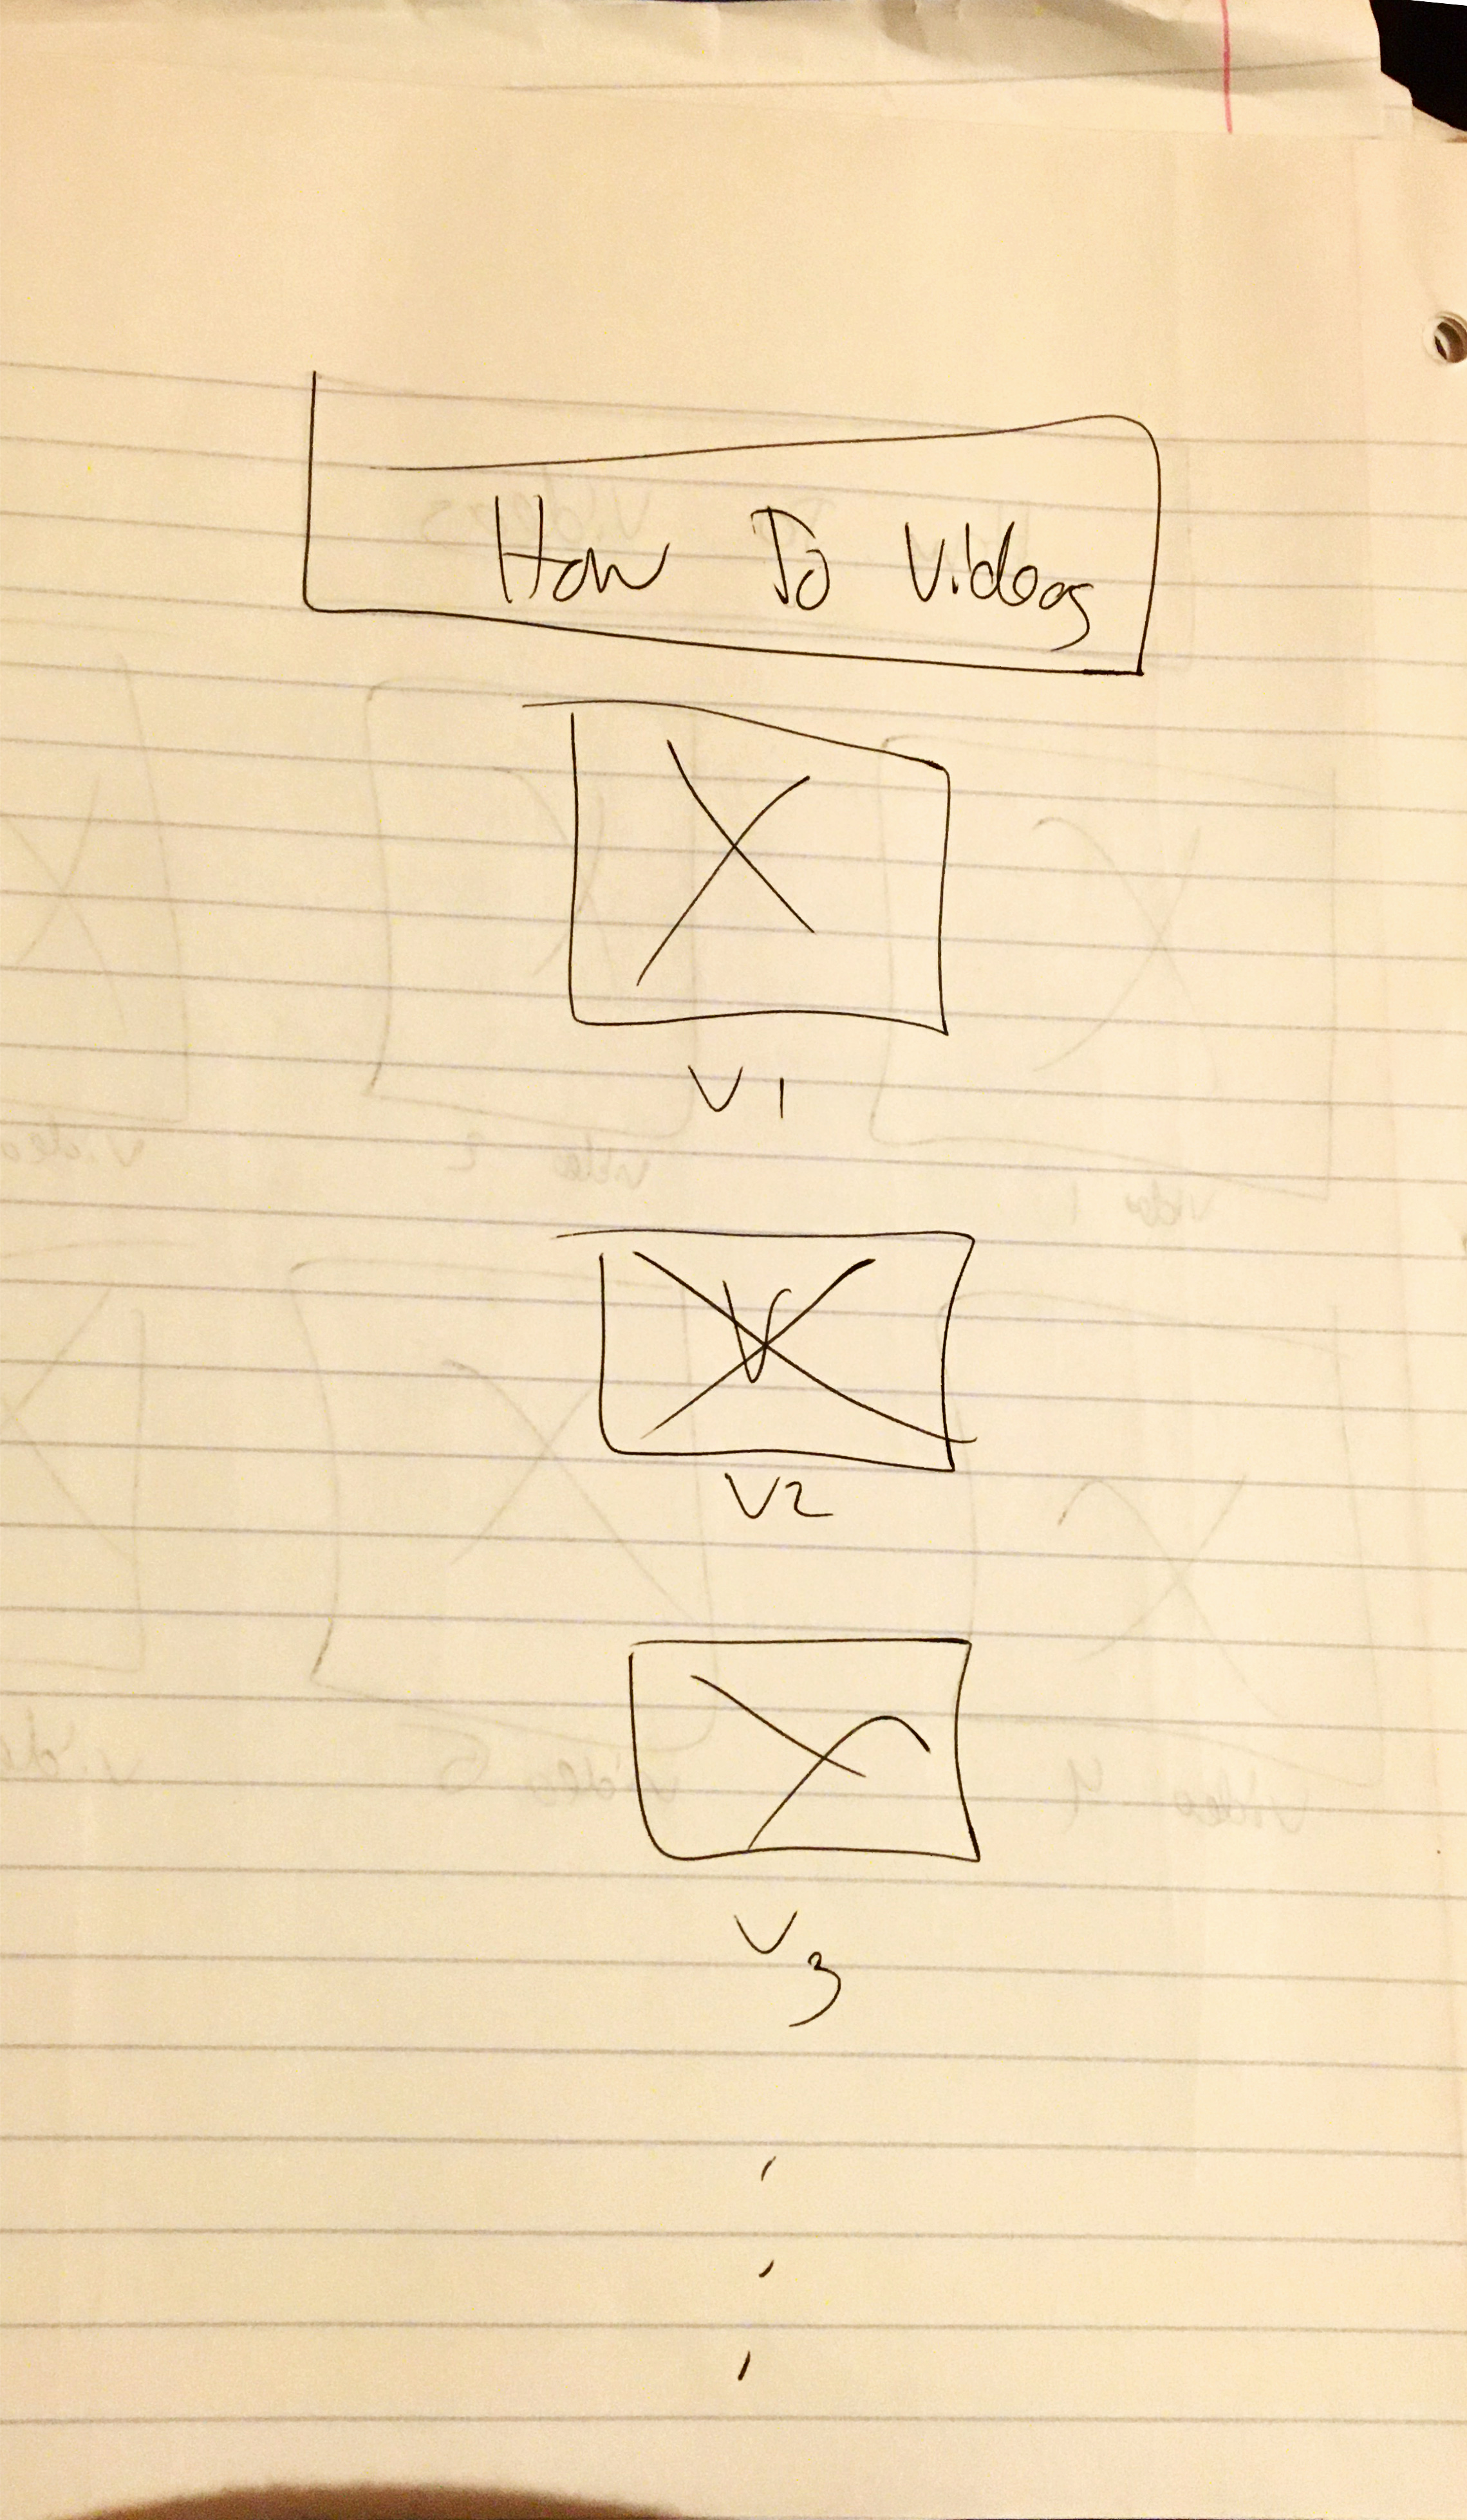 How To Videos
V 1
V
V2
V3